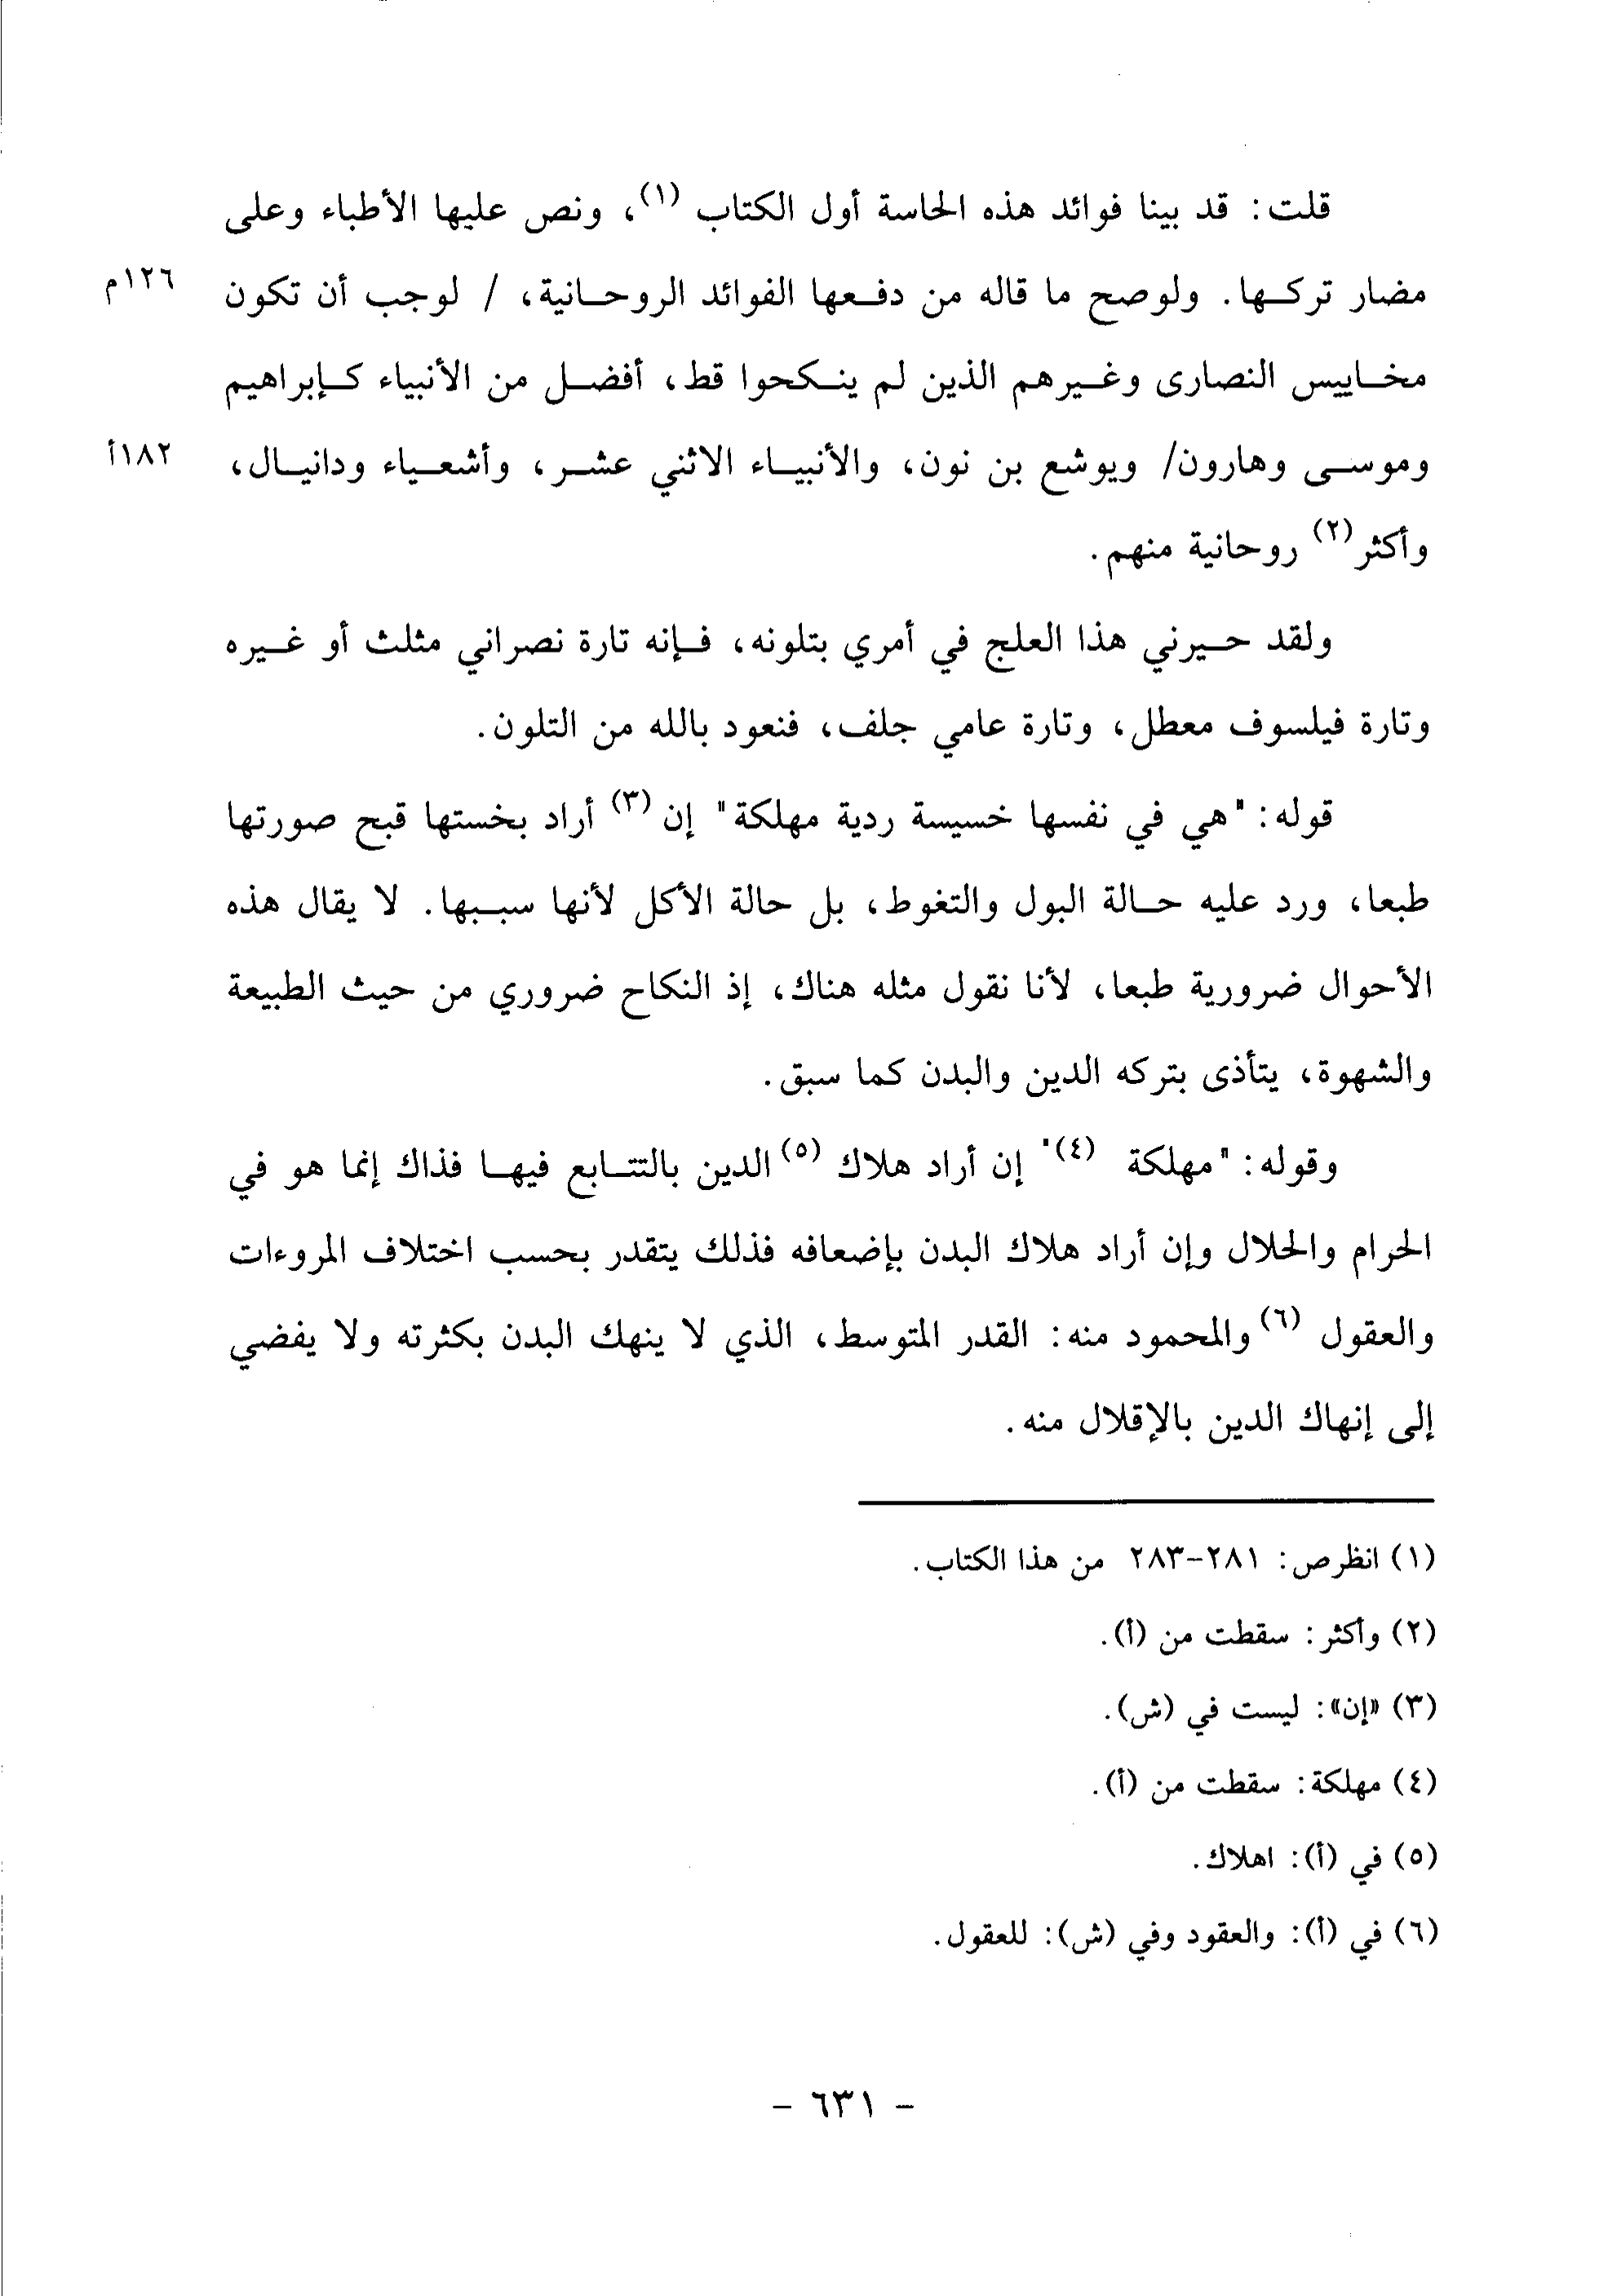 قلت: قد بينا فوائد هذه الحاسة أول الكتاب (١)، ونص عليها الأطباء وعلى
مضار تركها. ولوصح ما قاله من دفعها الفوائد الروحانية، / لوجب أن تكون ١٢٦م
مخاييس النصارى وغيرهم الذين لم ينكحوا قط، أفضل من الأنبياء كإبراهيم
وموسى وهارون/ ويوشع بن نون، والأنبياء الاثني عشر، وأشعياء ودانيال، ١٨٢أ
وأكثر (٢) روحانية منهم.
ولقد حيرني هذا العلج في أمري بتلونه، فإنه تارة نصراني مثلث أو غيره
وتارة فيلسوف معطل، وتارة عامي جلف، فنعود بالله من التلون.
قوله: "هي في نفسها خسيسة ردية مهلكة" إن (٣) أراد بخستها قبح صورتها
طبعا، ورد عليه حالة البول والتغوط، بل حالة الأكل لأنها سببها. لا يقال هذه
الأحوال ضرورية طبعا، لأنا نقول مثله هناك، إذ النكاح ضروري من حيث الطبيعة
والشهوة، يتأذى بتركه الدين والبدن كما سبق.
وقوله: "مهلكة (٤)" إن أراد هلاك (٥) الدين بالتتابع فيها فذاك إنما هو في
الحرام والحلال وإن أراد هلاك البدن بإضعافه فذلك يتقدر بحسب اختلاف المروءات
والعقول (٦) والمحمود منه: القدر المتوسط، الذي لا ينهك البدن بكثرته ولا يفضي
إلى إنهاك الدين بالإقلال منه.
(١) انظرص: ٢٨١-٢٨٣ من هذا الكتاب.
(٢) وأكثر: سقطت من (أ).
(٣) «إن»: ليست في (ش).
(٤) مهلكة: سقطت من (أ).
(٥) في (أ): اهلاك.
(٦) في (أ): والعقود وفي (ش): للعقول.
- ٦٣١ -